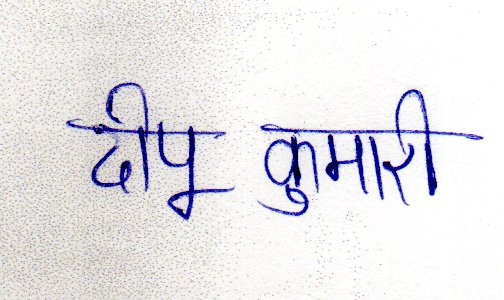 दीपू कुमारी